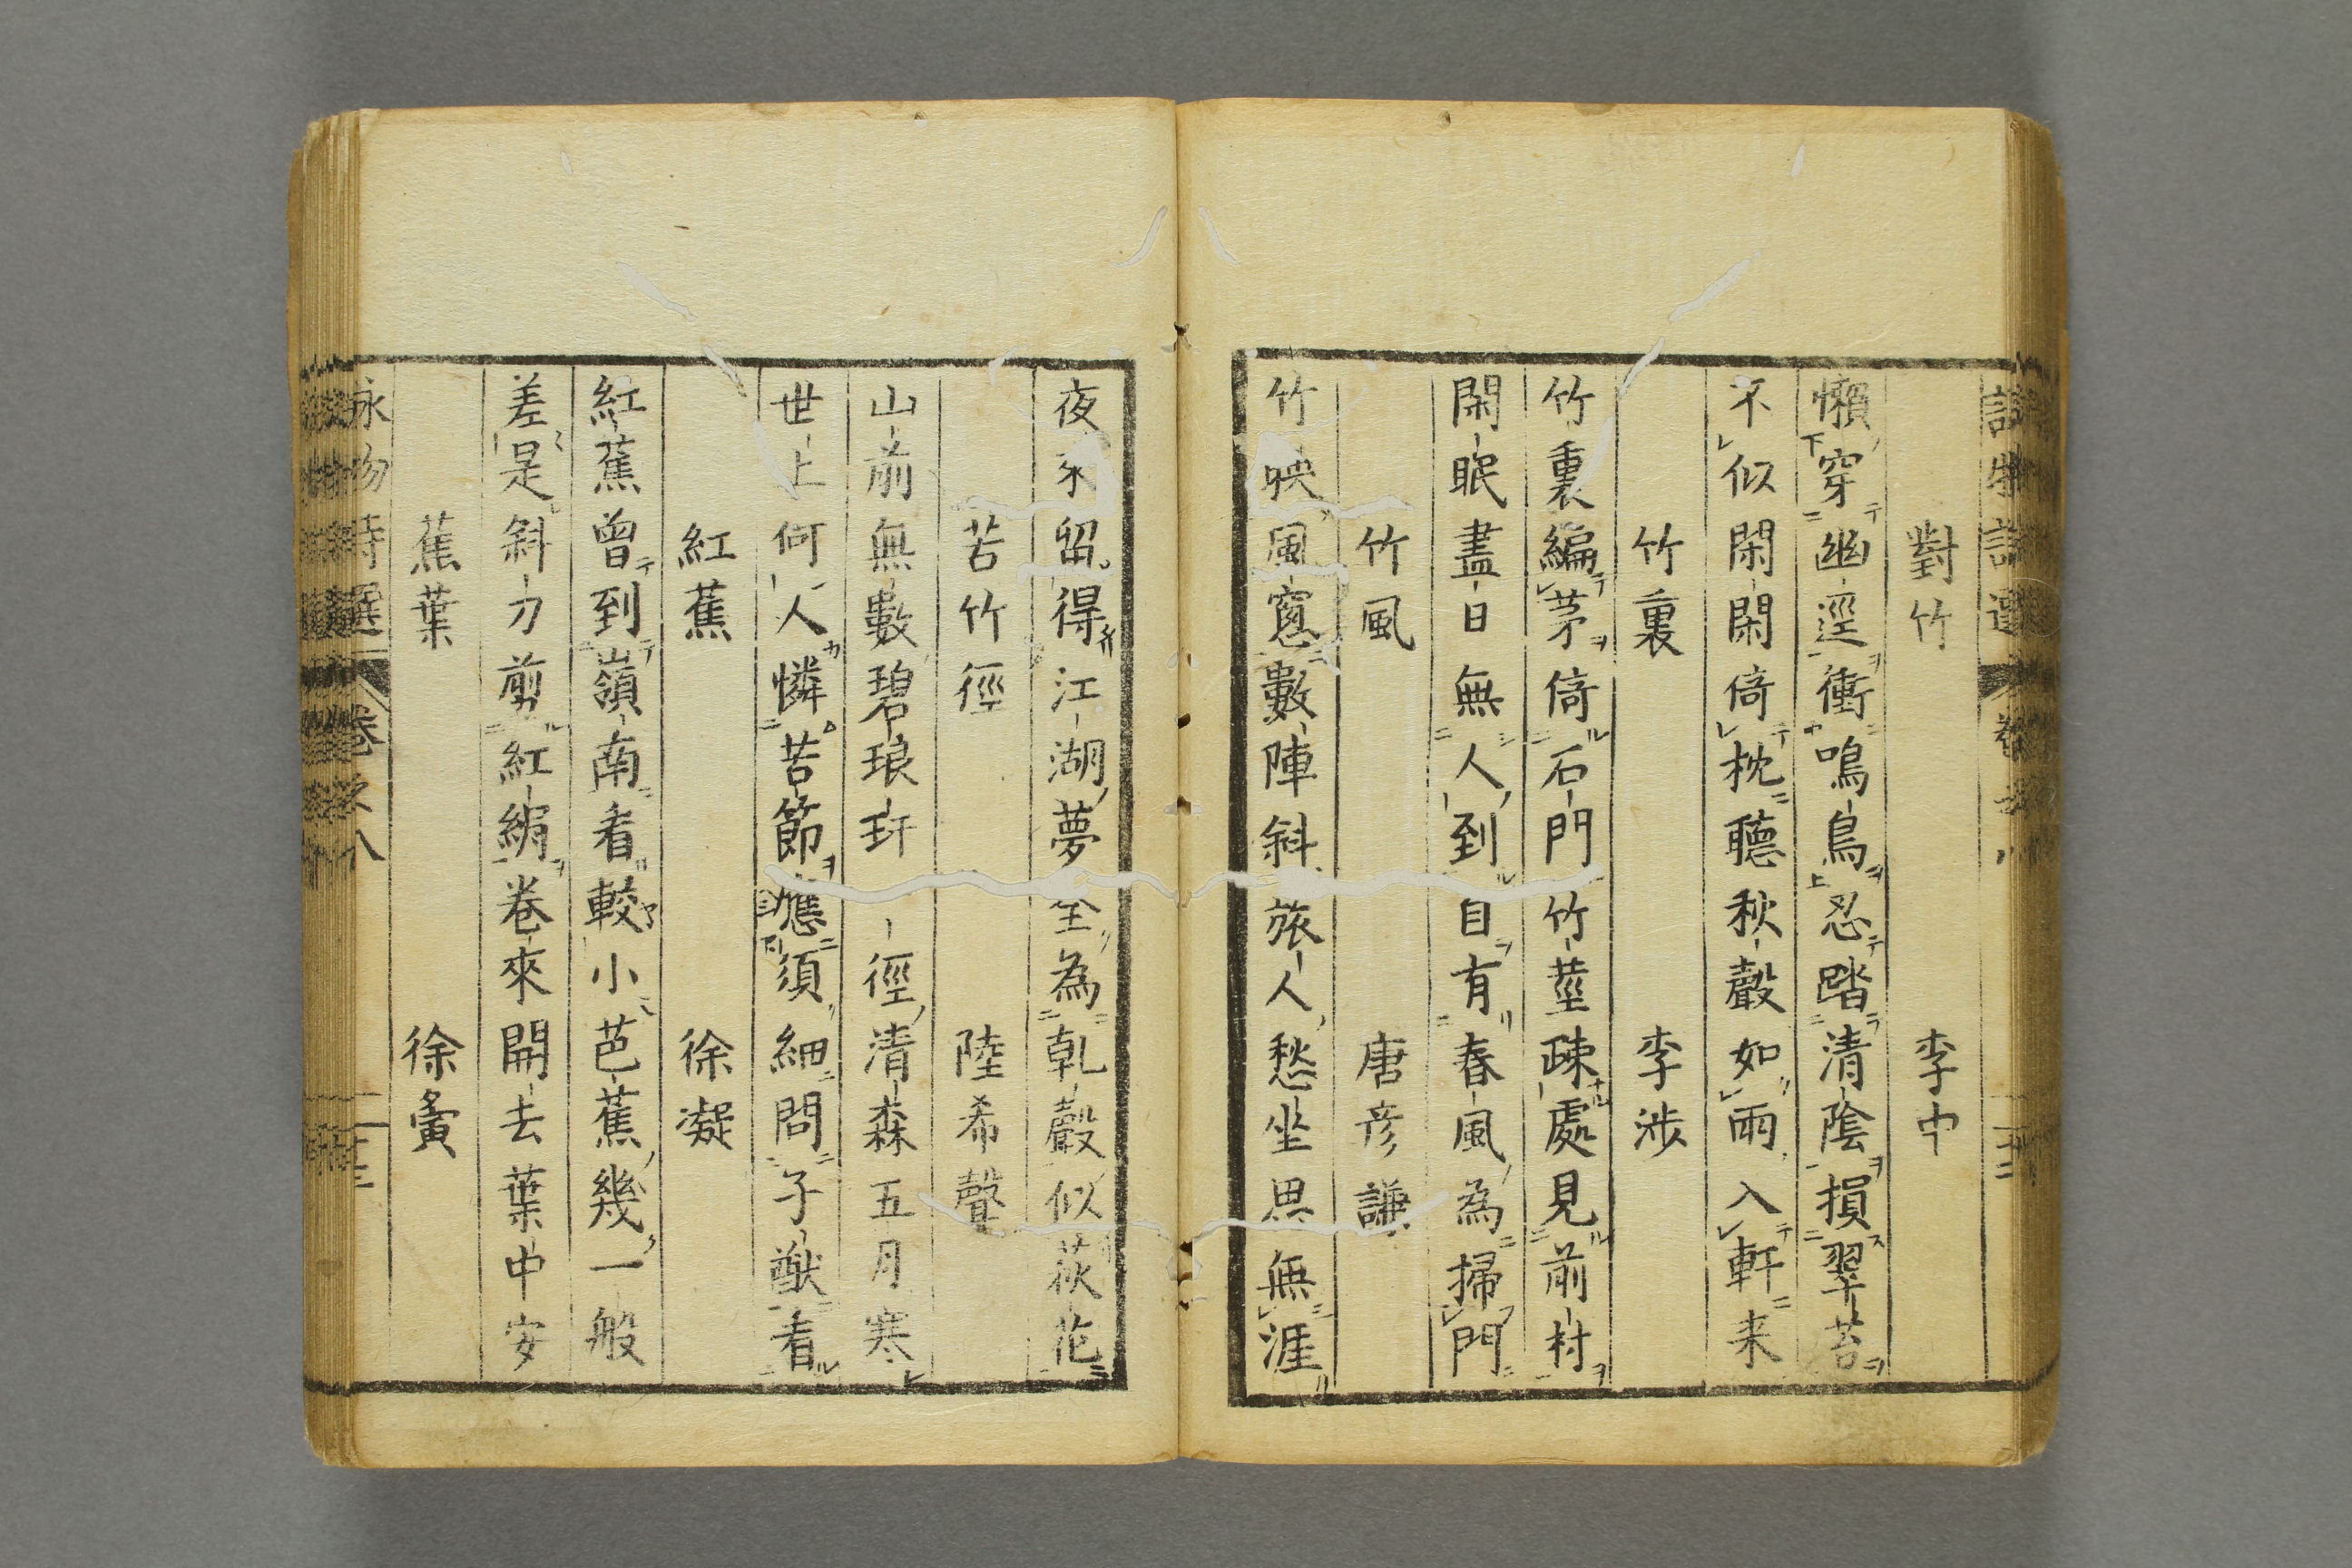 對竹 李中
懶穿幽逕衝鳴鳥忍踏清陰損翠苔
不似閑閑倚枕聴秋聲如雨入軒来
竹裏 李渉
竹裏編茅倚石門竹莖疎處見前村
閑眠盡日無人到自有春風為掃門
竹風 唐彦謙
竹映風窓數陣斜旅人愁坐思無涯
夜來留得江湖夢全為乾聲似荻花
苦竹徑 陸希聲
山前無數碧琅玕一徑清森五月寒
世上何人憐苦節應須細問子猷看
紅蕉 徐凝
紅蕉曾到嶺南看較小芭蕉幾一般
差是斜刀剪紅絹卷來開去葉中安
蕉葉 徐夤
詠物詩選 卷之八